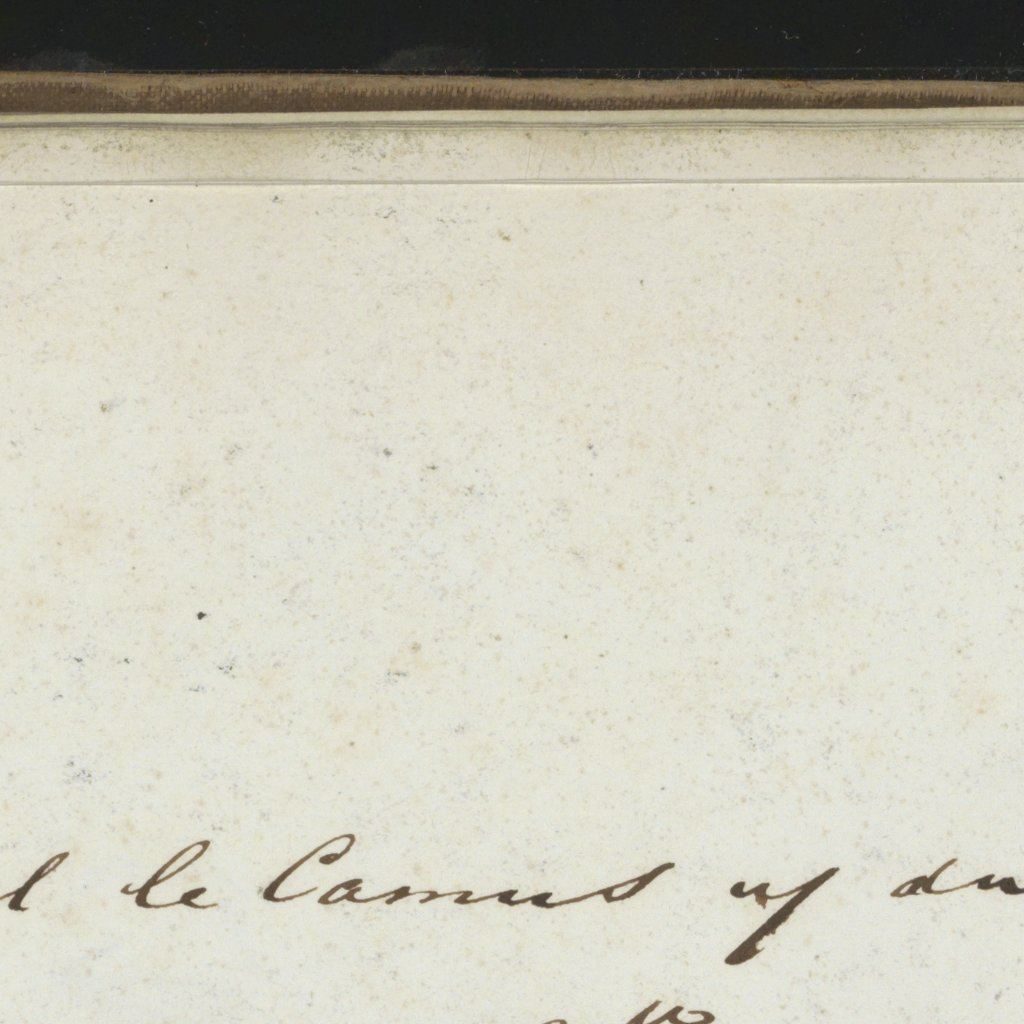 l le Camus af du